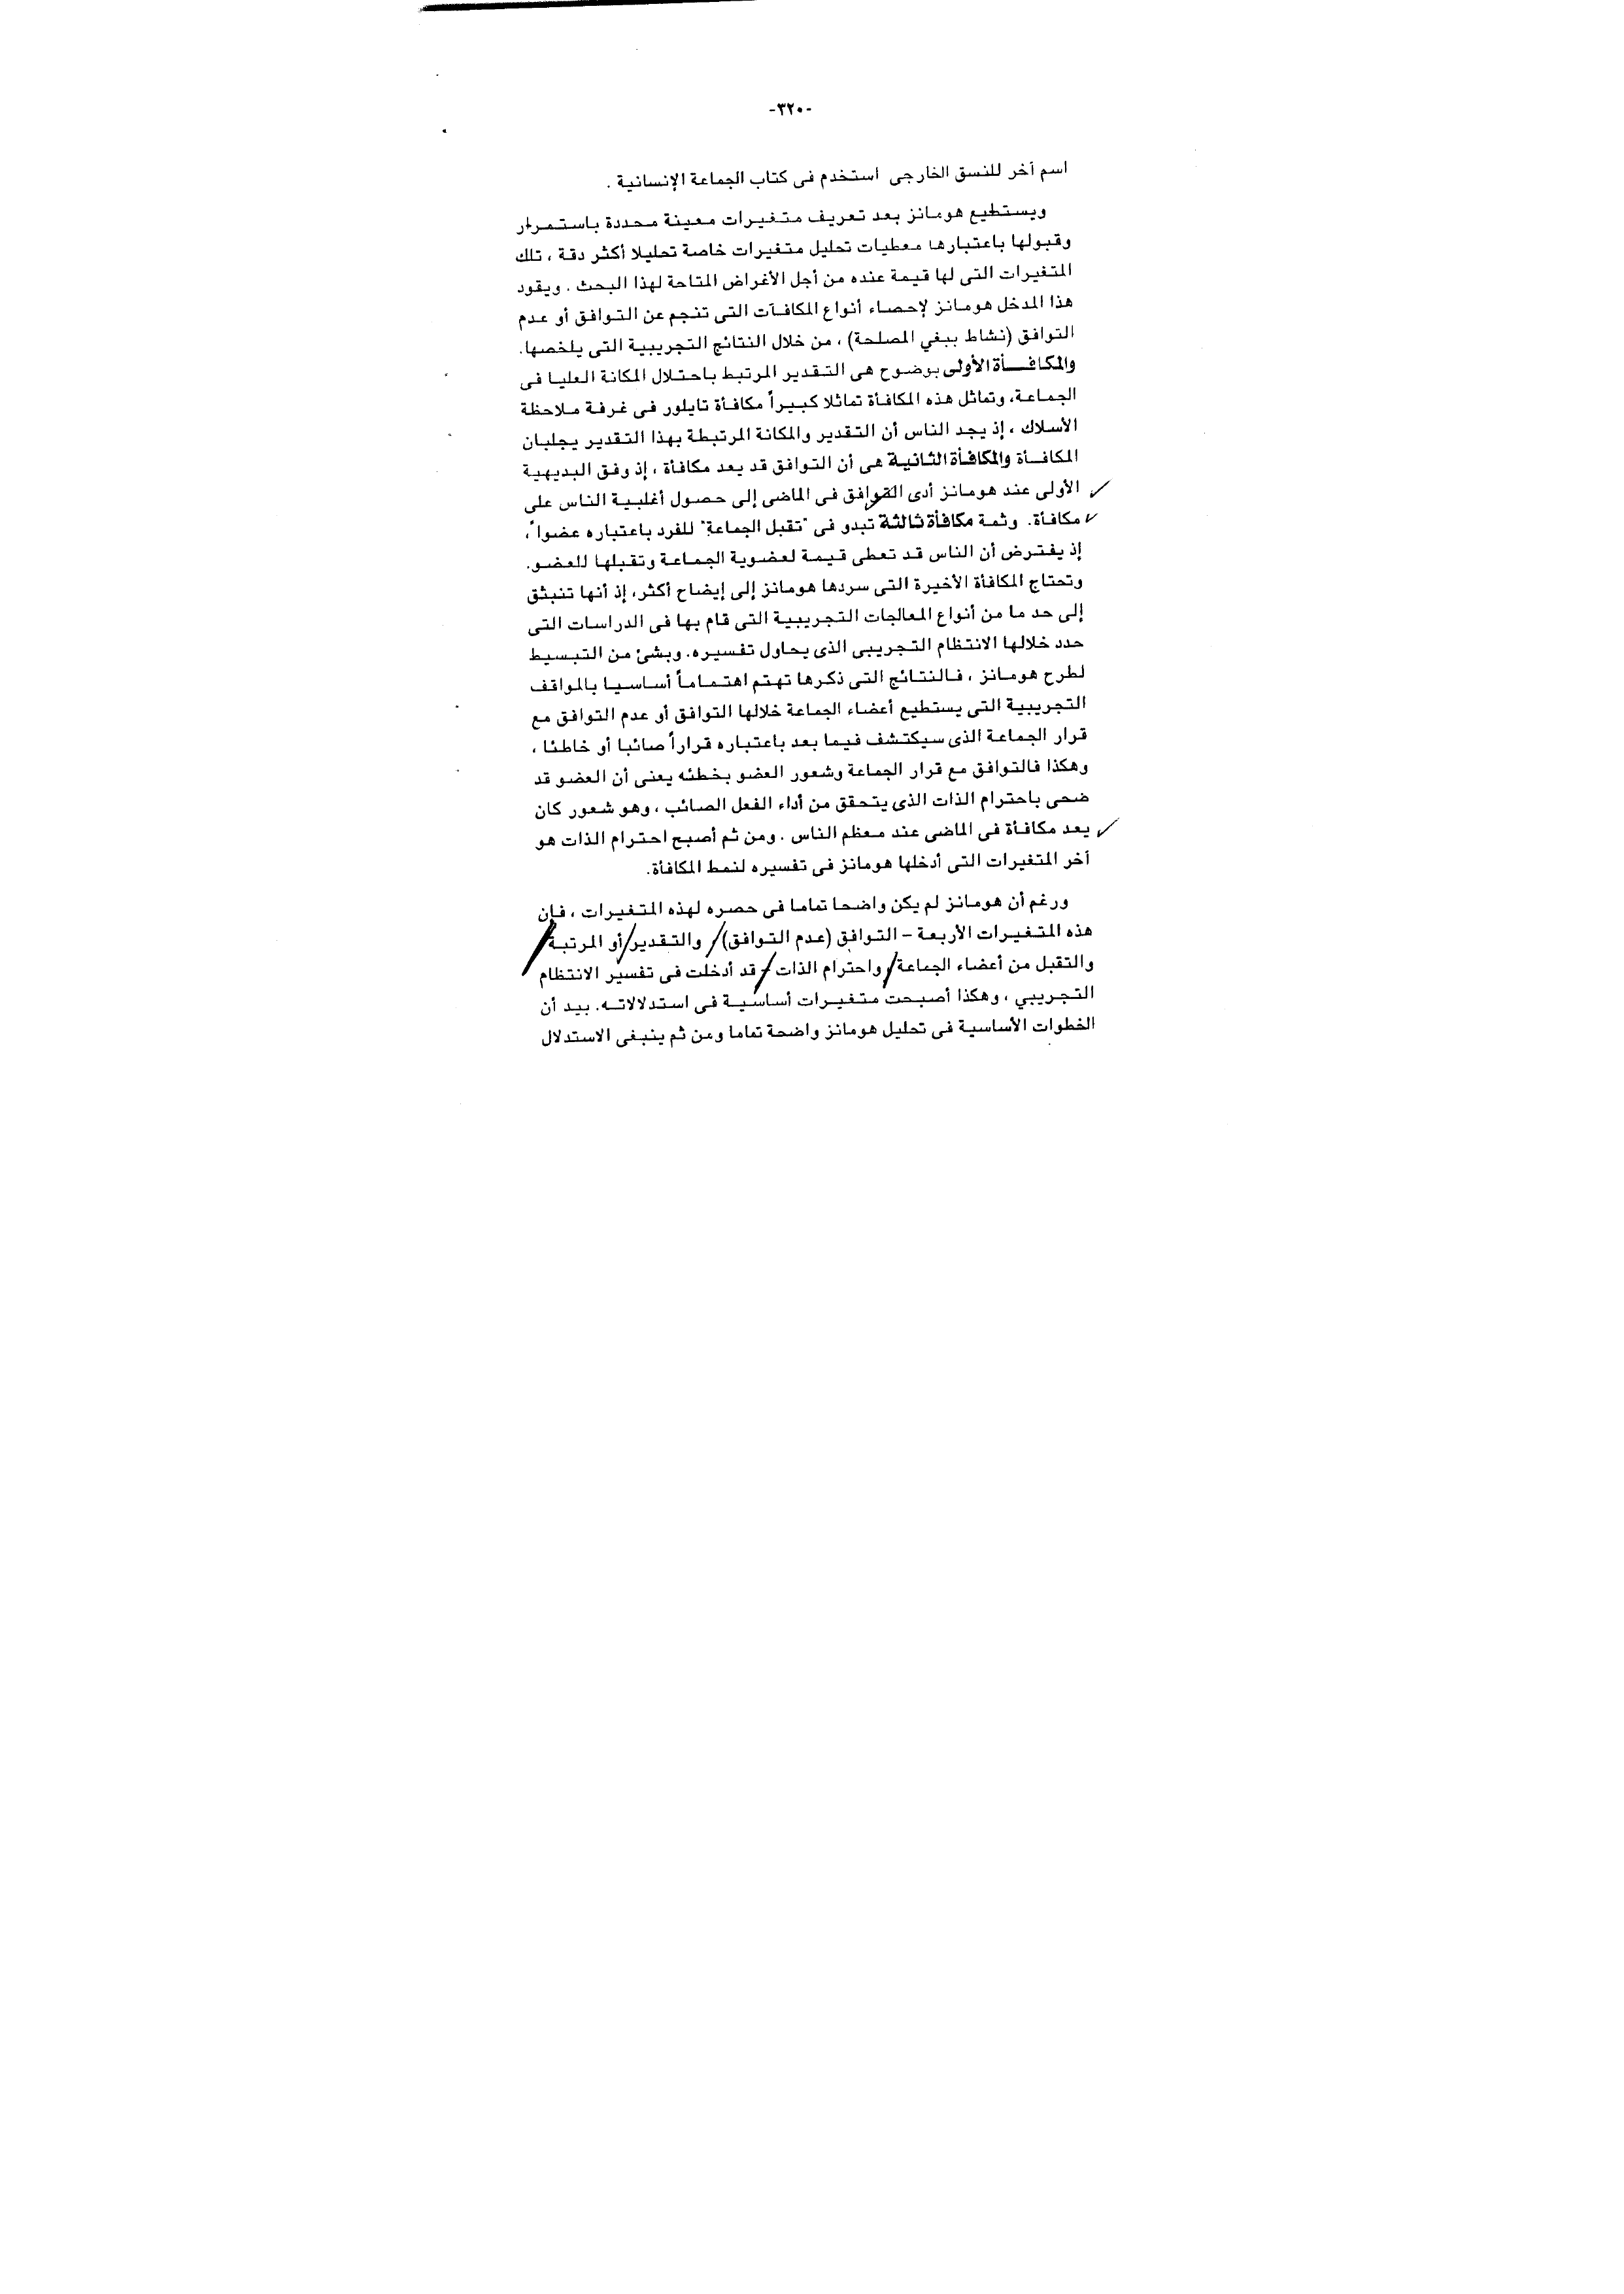 -٣٢٠-
اسم آخر للنسق الخارجى استخدم فى كتاب الجماعة الإنسانية .
ويستطيع هومانز بعد تعريف متغيرات معينة محددة باستمرار
وقبولها باعتبارها معطيات تحليل متغيرات خاصة تحليلا أكثر دقة ، تلك
المتغيرات التى لها قيمة عنده من أجل الأغراض المتاحة لهذا البحث . ويقود
هذا المدخل هومانز لإحصاء أنواع المكافآت التى تنجم عن التوافق أو عدم
التوافق (نشاط ببغي المصلحة) ، من خلال النتائج التجريبية التى يلخصها.
والمكافأة الأولى بوضوح هى التقدير المرتبط باحتلال المكانة العليا فى
الجماعة، وتماثل هذه المكافأة تماثلا كبيراً مكافأة تايلور فى غرفة ملاحظة
الأسلاك ، إذ يجد الناس أن التقدير والمكانة المرتبطة بهذا التقدير يجلبان
المكافأة والمكافأة الثانية هى أن التوافق قد يعد مكافأة ، إذ وفق البديهية
الأولى عند هومانز أدى التوافق فى الماضى إلى حصول أغلبية الناس على
مكافأة. وثمة مكافأة ثالثة تبدو فى "تقبل الجماعة" للفرد باعتباره عضواً ،
إذ يفترض أن الناس قد تعطى قيمة لعضوية الجماعة وتقبلها للعضو.
وتحتاج المكافأة الأخيرة التى سردها هومانز إلى إيضاح أكثر، إذ أنها تنبثق
إلى حد ما من أنواع المعالجات التجريبية التى قام بها فى الدراسات التى
حدد خلالها الانتظام التجريبى الذى يحاول تفسيره. وبشئ من التبسيط
لطرح هومانز ، فالنتائج التى ذكرها تهتم اهتماماً أساسيا بالمواقف
التجريبية التى يستطيع أعضاء الجماعة خلالها التوافق أو عدم التوافق مع
قرار الجماعة الذى سيكتشف فيما بعد باعتباره قراراً صائبا أو خاطئا ،
وهكذا فالتوافق مع قرار الجماعة وشعور العضو بخطئه يعنى أن العضو قد
ضحى باحترام الذات الذى يتحقق من أداء الفعل الصائب ، وهو شعور كان
يعد مكافأة فى الماضى عند معظم الناس . ومن ثم أصبح احترام الذات هو
آخر المتغيرات التى أدخلها هومانز فى تفسيره لنمط المكافأة.
ورغم أن هومانز لم يكن واضحا تماما فى حصره لهذه المتغيرات ، فإن
هذه المتغيرات الأربعة – التوافق (عدم التوافق) والتقدير أو المرتبة
والتقبل من أعضاء الجماعة واحترام الذات – قد أدخلت فى تفسير الانتظام
التجريبي ، وهكذا أصبحت متغيرات أساسية فى استدلالاته. بيد أن
الخطوات الأساسية فى تحليل هومانز واضحة تماما ومن ثم ينبغى الاستدلال